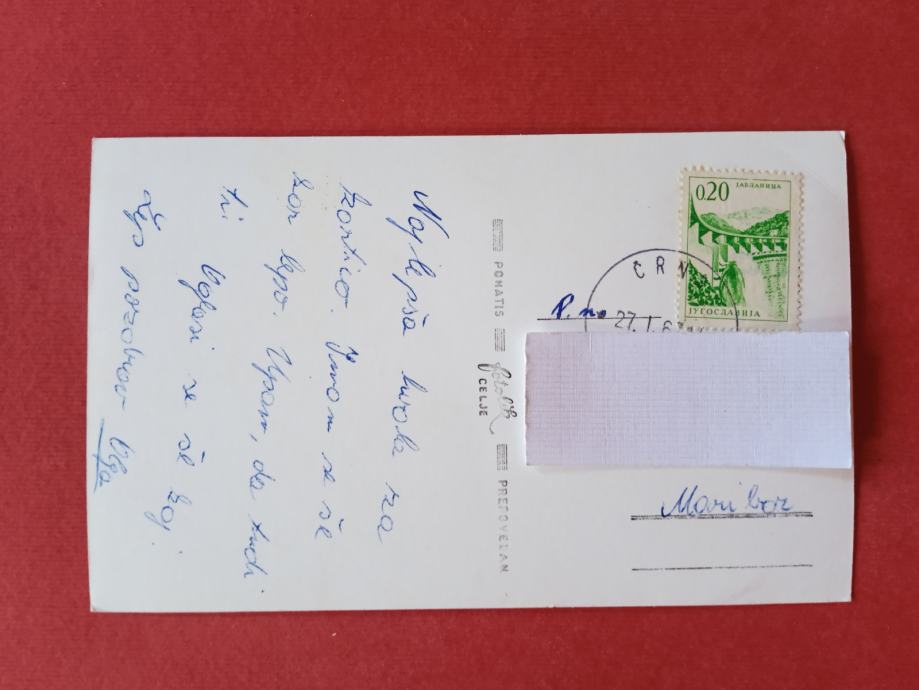 Najlepša hvala za
kartico. Imam se še
kar lepo. Upam, da tudi
ti. Oglasi se še kaj.
Lep pozdrav Olga
PONATIS
fotolik
CELJE
PREPOVEDAN
0.20
ЈАБЛАНИЦА
ЈУГОСЛАВИЈА
CRN
27. I. 6
Maribor